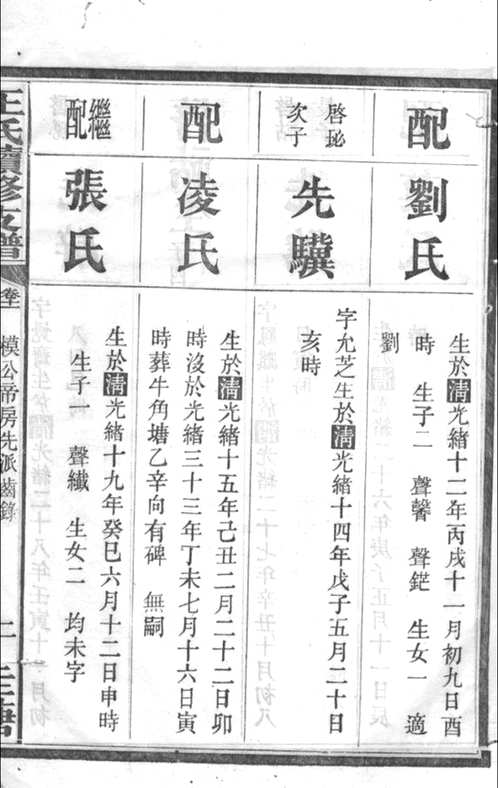 配
劉氏
生於清光緒十二年丙戌十一月初九日酉
時 生子二 聲馨 聲鋩 生女一 適
劉
啓㻫次子
先驥
字允芝生於清光緒十四年戊子五月二十日
亥時
配
凌氏
生於清光緒十五年己丑二月二十二日卯
時沒於光緒三十三年丁未七月十六日寅
時葬牛角塘乙辛向有碑 無嗣
繼配
張氏
生於清光緒十九年癸巳六月十二日申時
生子一 聲纖 生女二 均未字
王氏續修支譜
模公帝房先派齒錄
二